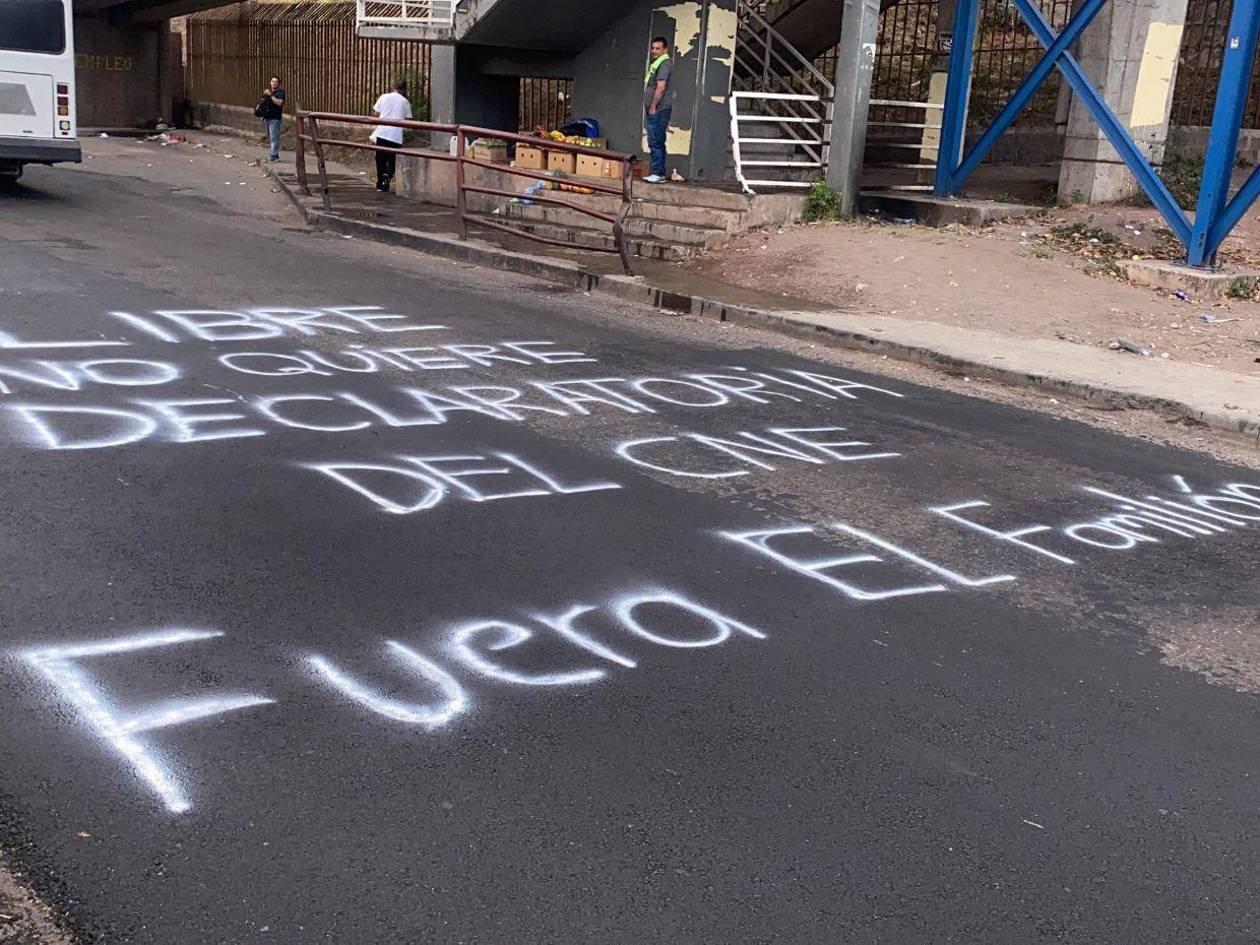 LIBRE
NO QUIERE
DECLARATORIA
DEL CNE
Fuera EL Familión
EMPLEO